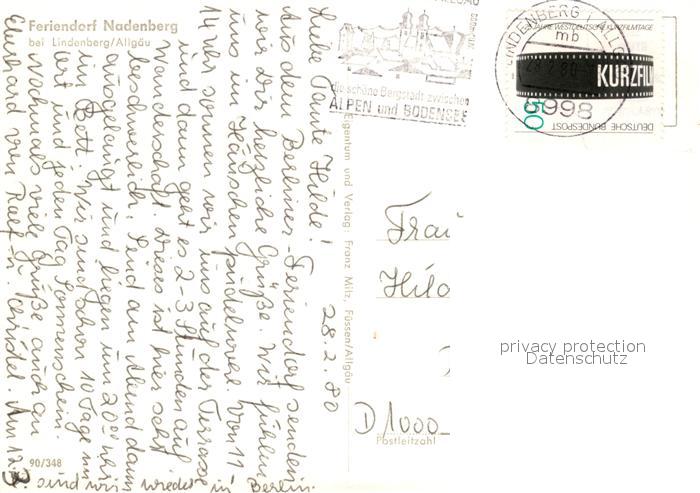 Feriendorf Nadenberg
bei Lindenberg/Allgäu
28.2.80
Liebe Tante Hilde!
Aus dem Berliner-Feriendorf senden
wir Dir herzliche Grüße. Wir fühlen
uns im Häuschen pudelwohl. Von 11
14 Uhr sonnen wir uns auf der Terrasse
und dann geht es 2-3 Stunden auf
Wanderschaft. Dieses ist hier sehr
beschwerlich. Sind am Abend dann
ausgelaugt und liegen um 20⁰⁰ Uhr
im Bett. Wir sind schon 10 Tage
hier und jeden Tag Sonnenschein.
Nochmals viele Grüße auch an
Ekkehard von Ralf u. Christel. Am 12.3.
sind wir wieder in Berlin.
90/348
Eigentum und Verlag: Franz Milz, Füssen/Allgäu
die schöne Bergstadt zwischen
ALPEN und BODENSEE
LINDENBERG I ALLG
mb
28.2.80
8998
JAHRE WESTDEUTSCHE KURZFILMTAGE
KURZFIL
50
DEUTSCHE BUNDESPOST
Frau
Hild
D 1000
Postleitzahl
privacy protection
Datenschutz